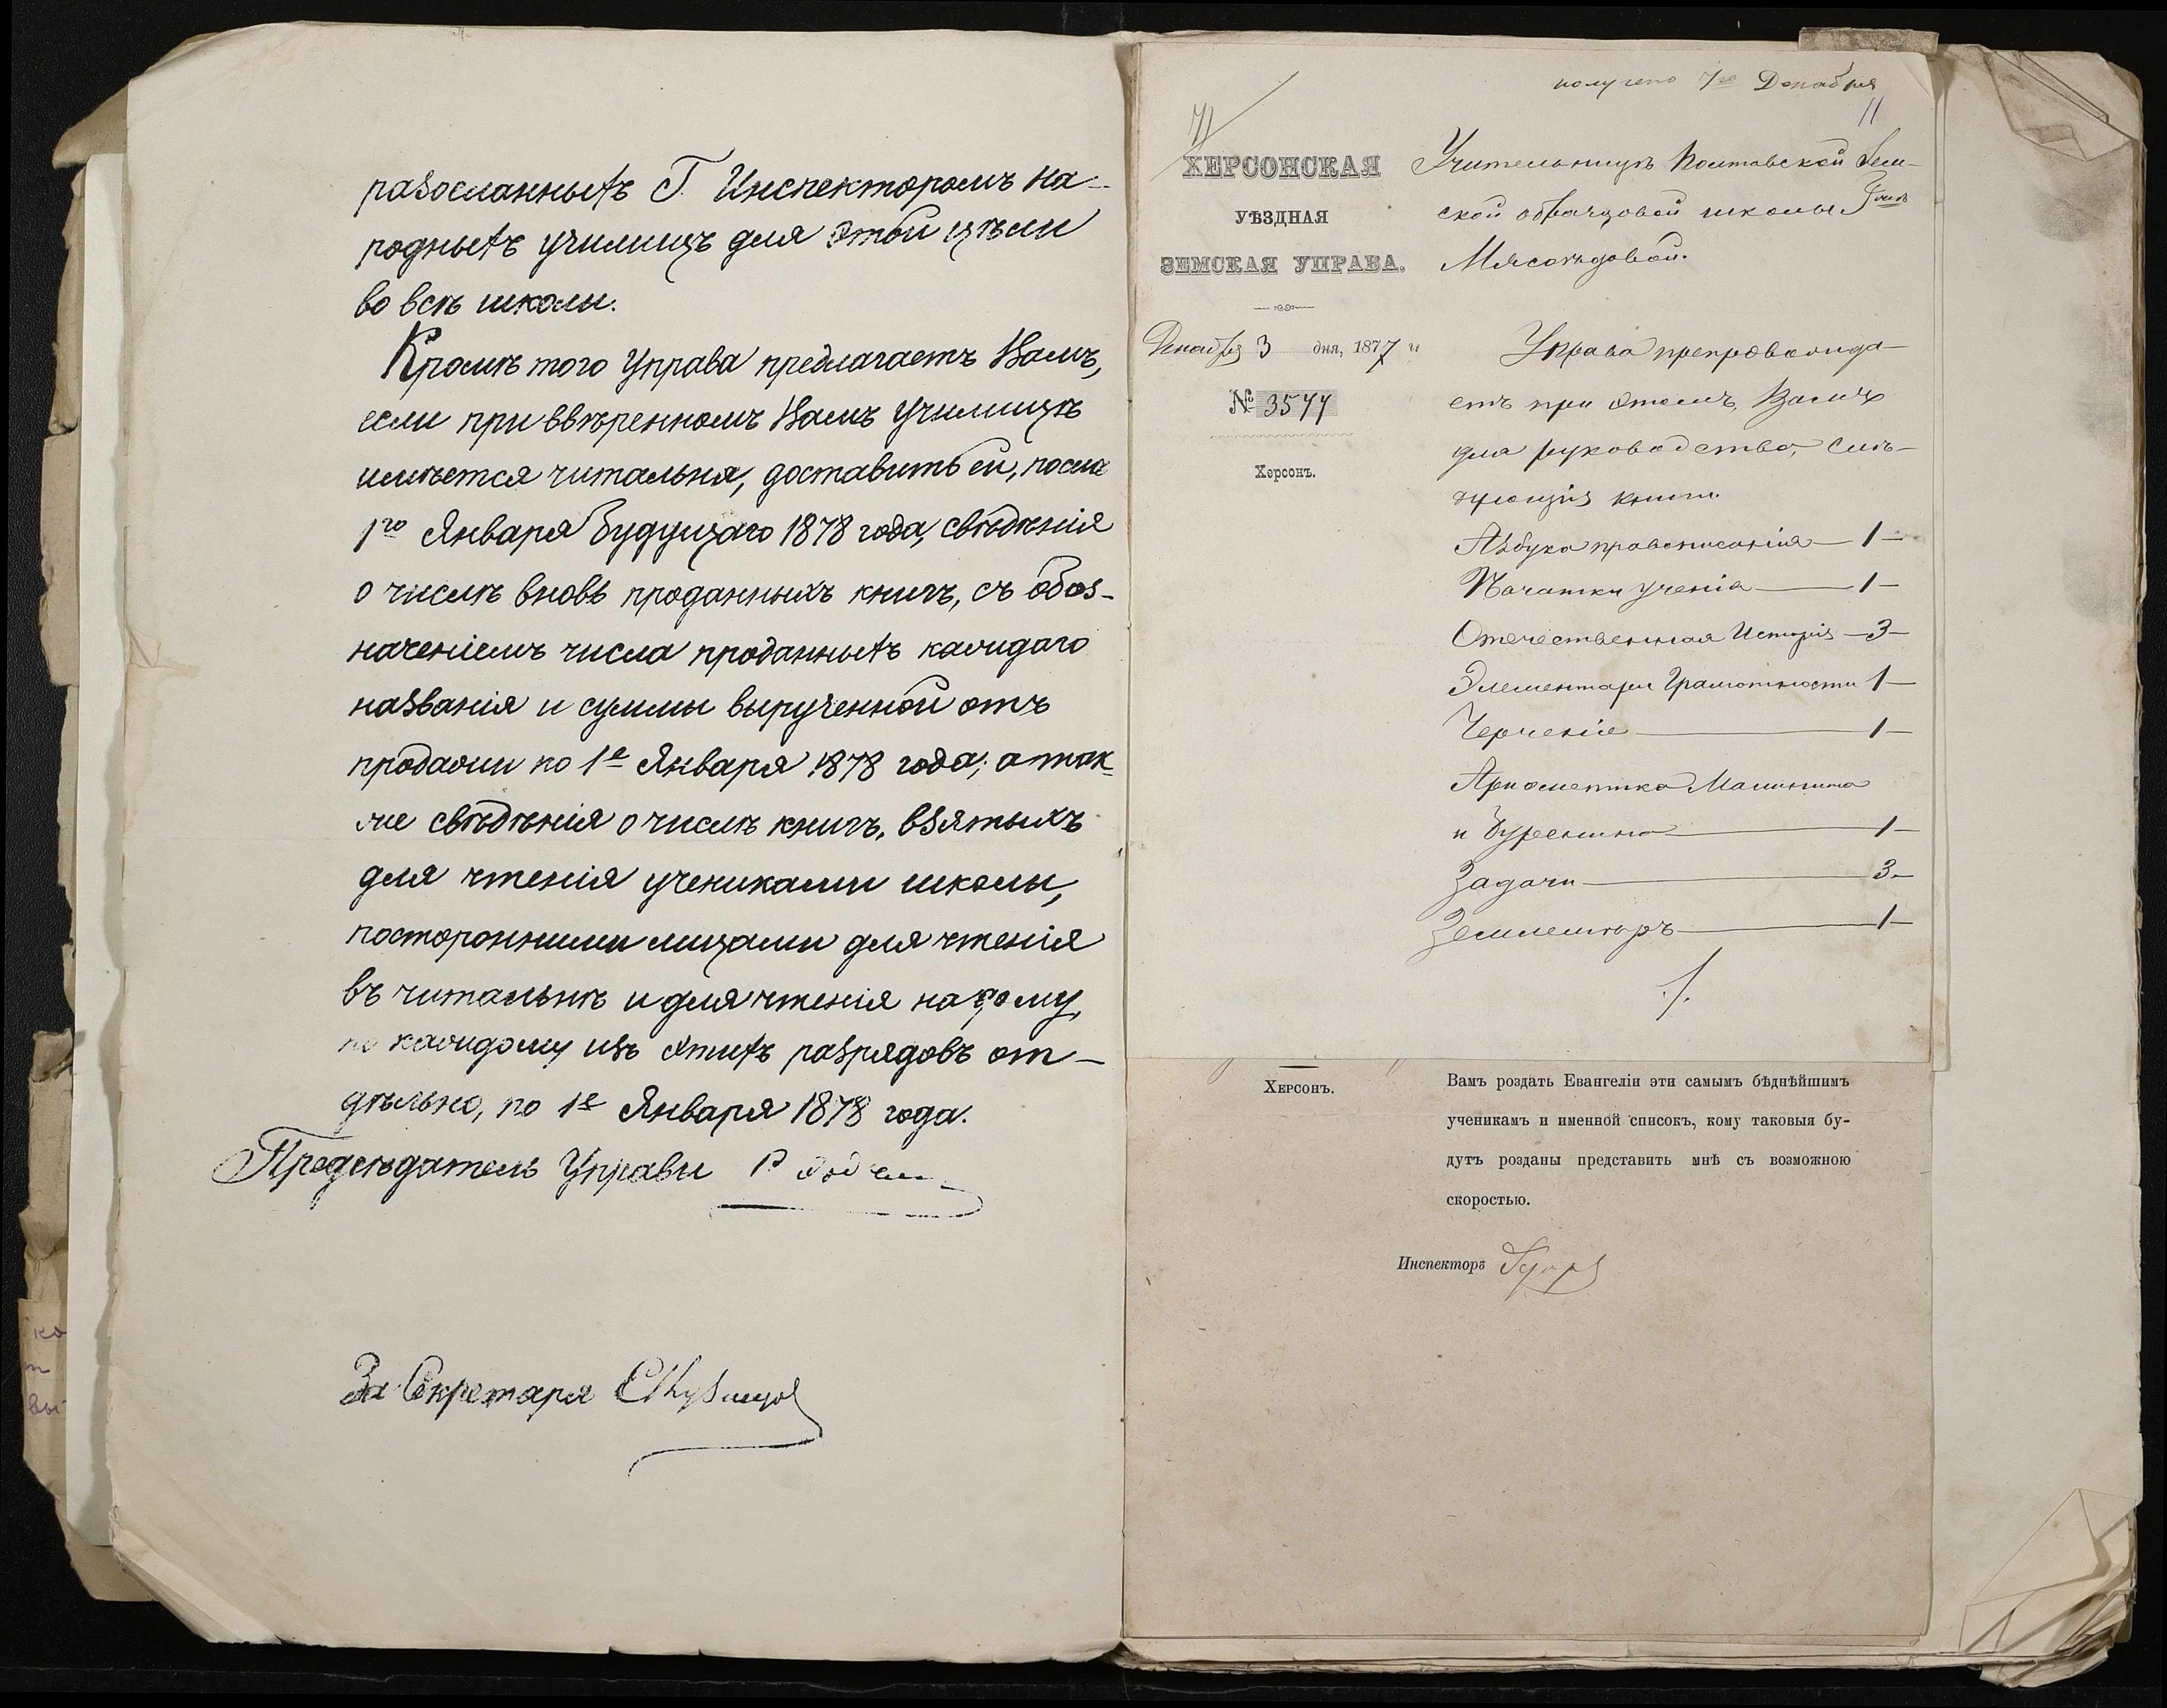 разосланныхъ Г. Инспекторомъ на-
родныхъ училищъ для этой цѣли
во всѣ школы.
Кромѣ того Управа предлагаетъ Вамъ,
если при ввѣренномъ Вамъ училищѣ
имѣется читальня, доставить ей, послѣ
1го Января будущаго 1878 года, свѣдѣнія
о числѣ вновь проданныхъ книгъ, съ обоз-
наченіемъ числа проданныхъ каждаго
названія и суммы вырученной отъ
продажи по 1е Января 1878 года; а так-
же свѣдѣнія о числѣ книгъ, взятыхъ
для чтенія учениками школы,
посторонними лицами для чтенія
въ читальнѣ и для чтенія на дому,
по каждому изъ этихъ разрядовъ от-
дѣльно, по 1е Января 1878 года.
Предсѣдатель Управы
За Секретаря
получено 7го Декабря
11
ХЕРСОНСКАЯ
УѢЗДНАЯ
ЗЕМСКАЯ УПРАВА.
Декабря 3 дня, 1877
№ 3577
Херсонъ.
Учительницѣ Полтавской Зем-
ской образцовой школы Гжѣ
Мясоѣдовой.
Управа препровожда-
етъ при этомъ, Вамъ
для руководства, слѣ-
дующія книги.
Азбука правописанія — 1 —
Початки ученія — 1 —
Отечественная Исторія — 3 —
Элементари Грамотности 1 —
Черченіе — 1 —
Ариѳметика Малинина
и Буренина — 1 —
Задачи — 3 —
Землемѣръ — 1 —
Херсонъ.
Вамъ роздать Евангеліи эти самымъ бѣднѣйшимъ
ученикамъ и именной списокъ, кому таковыя бу-
дутъ розданы представить мнѣ съ возможною
скоростью.
Инспекторъ